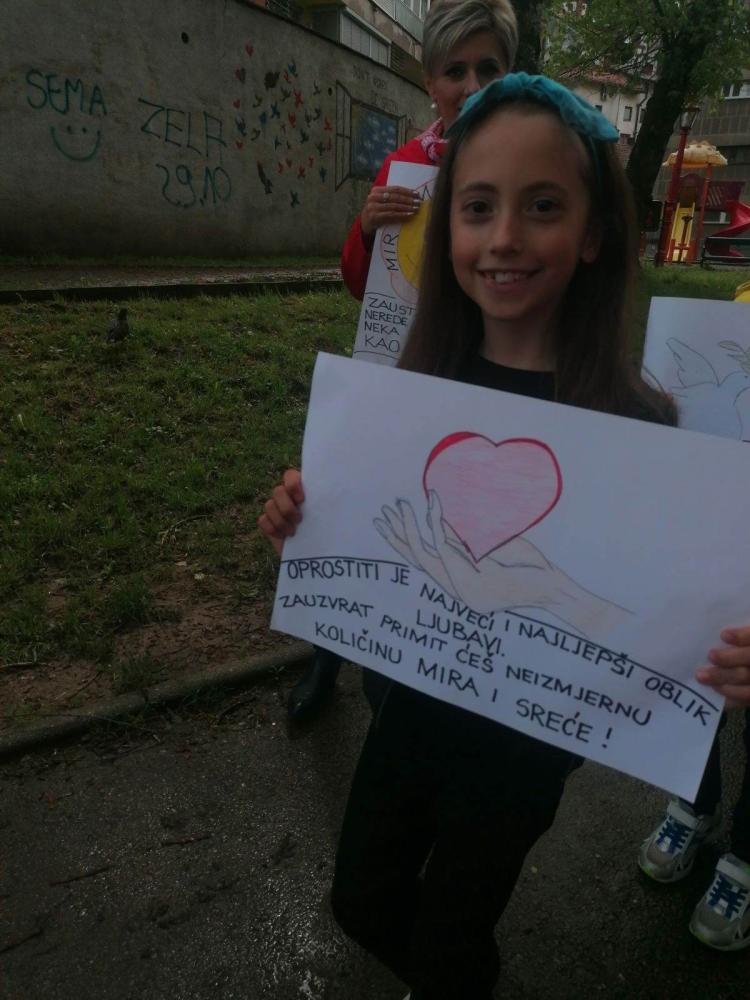 SEMA
ZELA
29.10
MIR
ZAUST
NEREDE
NEKA
KAO
OPROSTITI JE NAJVEĆI I NAJLJEPŠI OBLIK
LJUBAVI.
ZAUZVRAT PRIMIT ĆEŠ NEIZMJERNU
KOLIČINU MIRA I SREĆE!